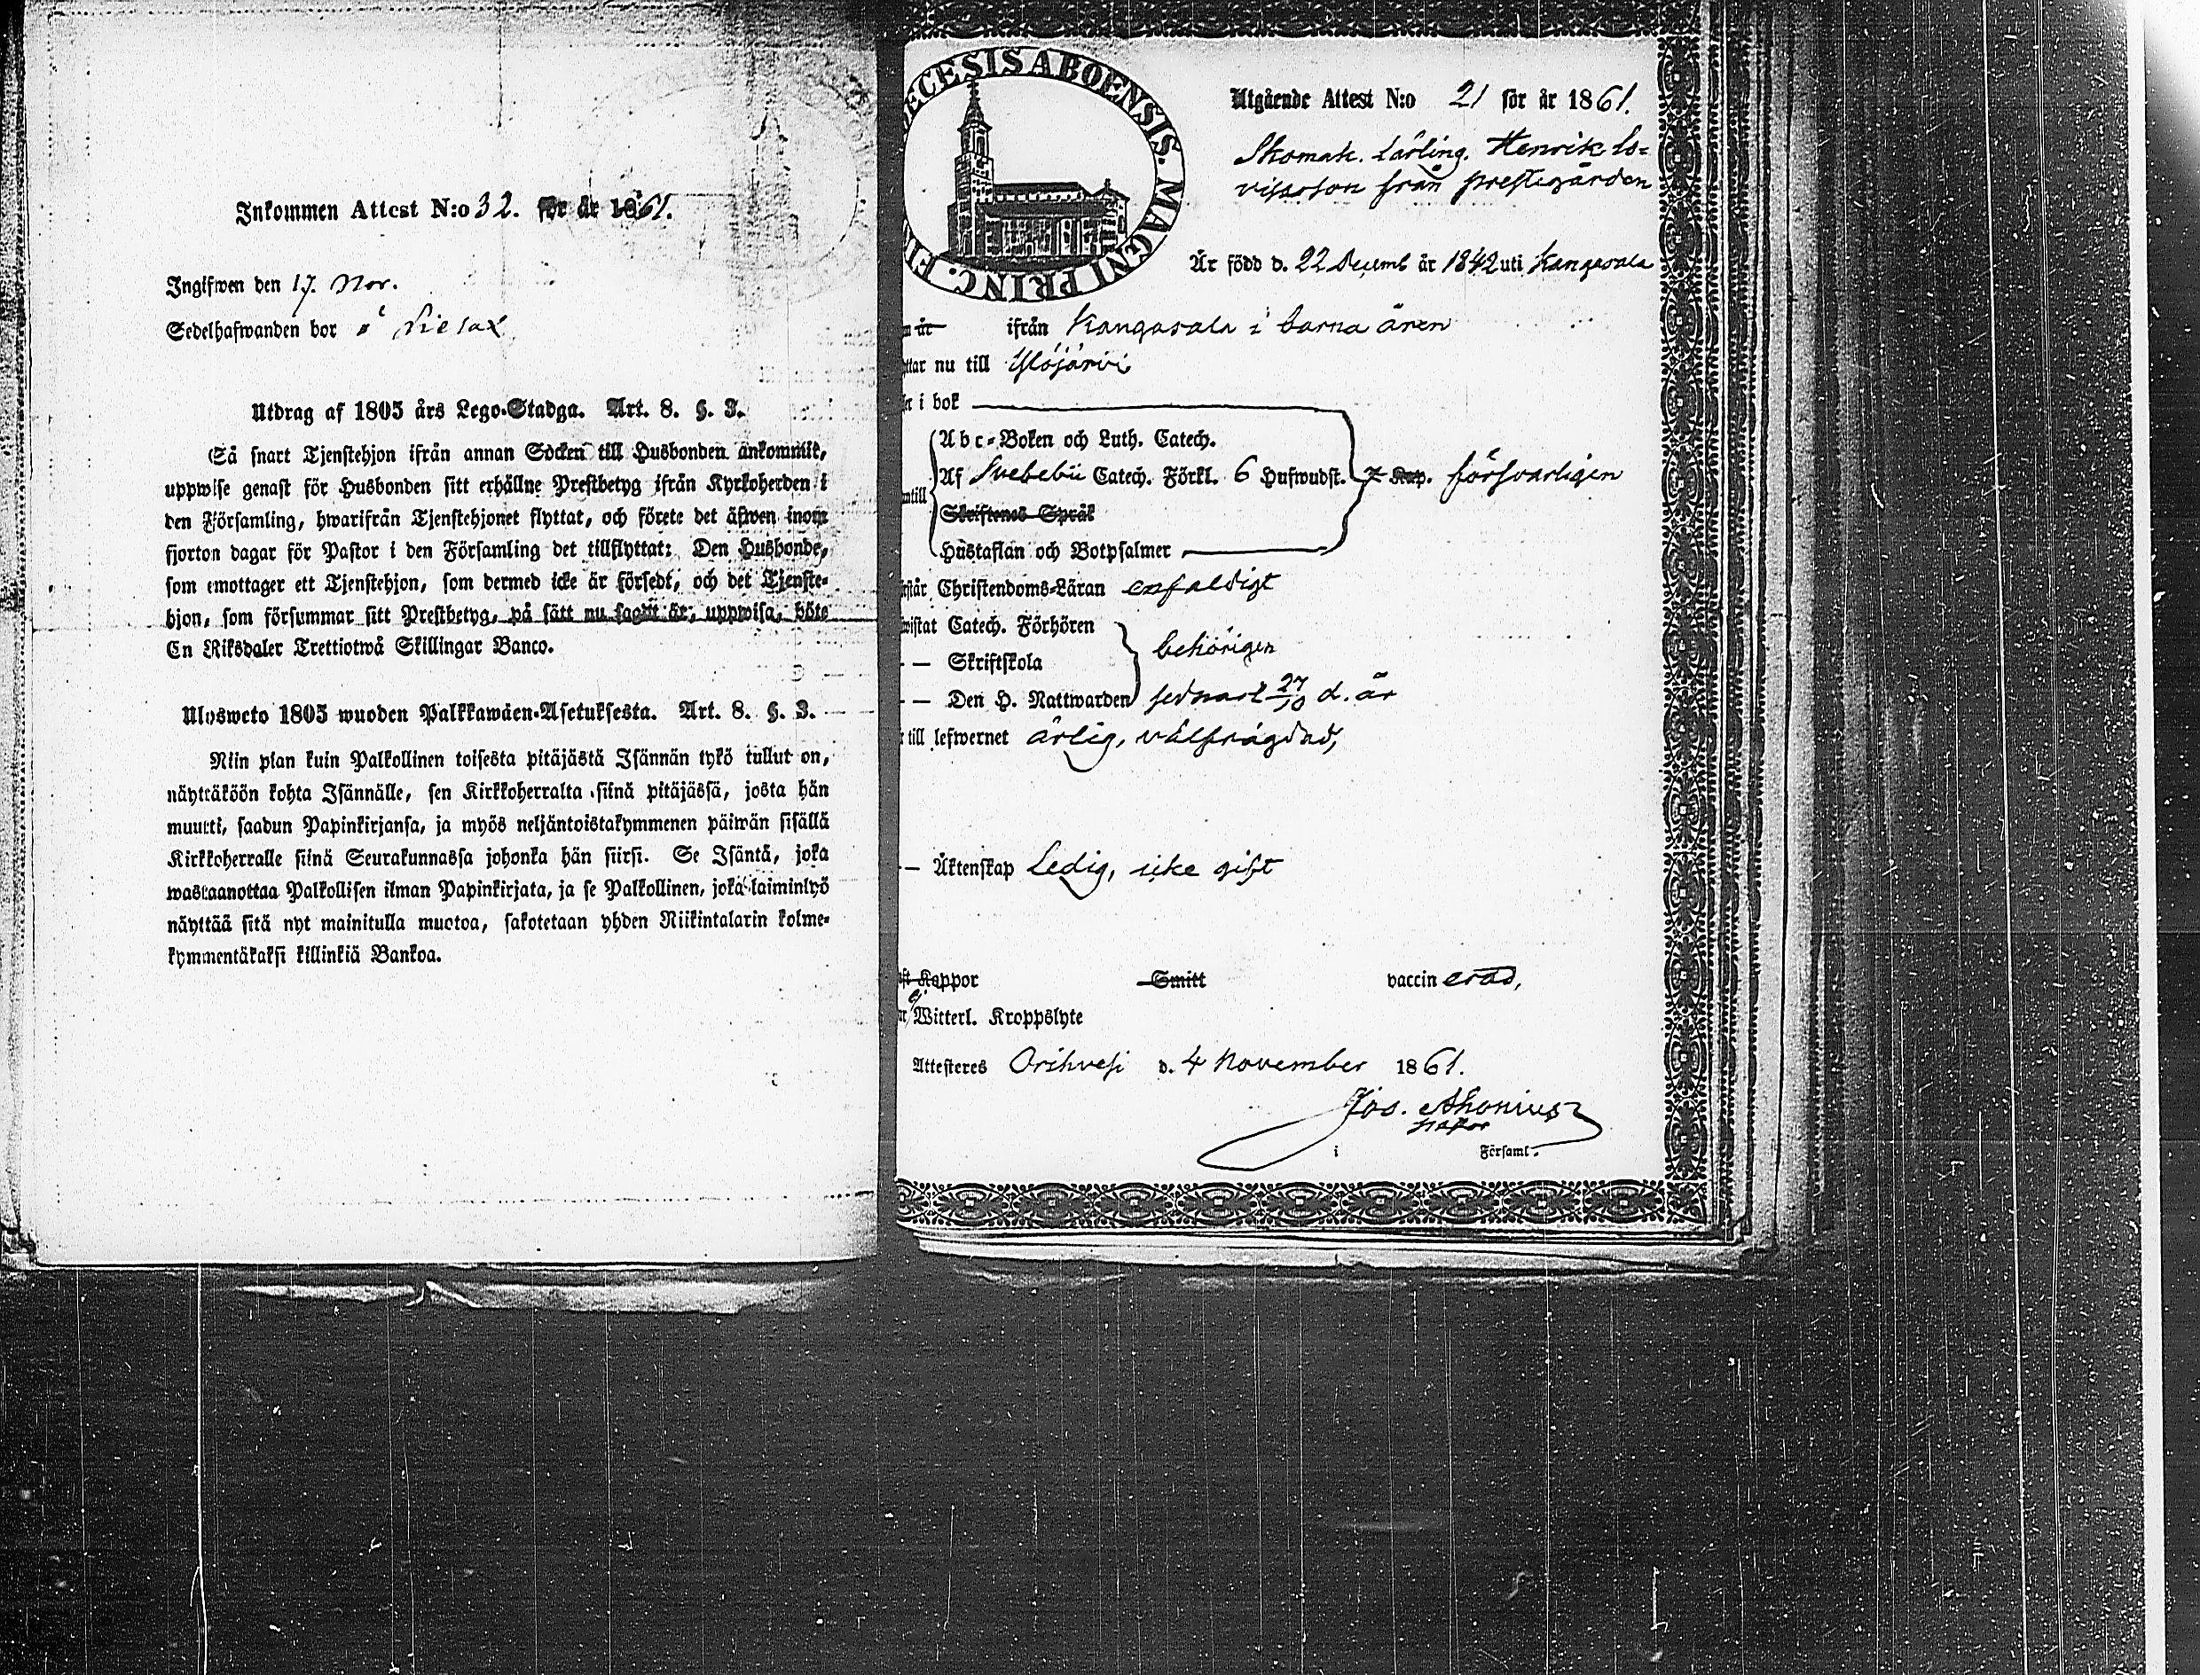 Inkommen Attest N:o 32. för år 1861.
Ingifwen den 17. Nov.
Sedelhafwanden bor
Utdrag af 1805 års Lego-Stadga. Art. 8. §. 3.
Så snart Tjenstehjon ifrån annan Socken till Husbonden ankommit,
uppwise genast för Husbonden sitt erhållne Prestbetyg ifrån Kyrkoherden i
den Församling, hwarifrån Tjenstehjonet flyttat, och förete det äfwen inom
fjorton dagar för Pastor i den Församling det tillflyttat: Den Husbonde,
som emottager ett Tjenstehjon, som dermed icke är försedt, och det Tjenste-
hjon, som försummar sitt Prestbetyg, på sätt nu sagdt är, uppwisa, böte
En Riksdaler Trettiotwå Skillingar Banco.
Ulosweto 1805 wuoden Palkkawäen-Asetuksesta. Art. 8. §. 3.
Niin pian kuin Palkollinen toisesta pitäjästä Isännän tykö tullut on,
näyttäköön kohta Isännälle, sen Kirkkoherralta siinä pitäjässä, josta hän
muutti, saadun Papinkirjansa, ja myös neljäntoistakymmenen päiwän sisällä
Kirkkoherralle siinä Seurakunnassa johonka hän siirsi. Se Isäntä, joka
wastaanottaa Palkollisen ilman Papinkirjata, ja se Palkollinen, joka laiminlyö
näyttää sitä nyt mainitulla muotoa, sakotetaan yhden Riikintalarin kolme-
kymmentäkaksi killinkiä Bankoa.
ECESIS ABOENSIS. MAGNI PRINC. FI
Utgående Attest N:o 21 för år 1861.
Skomak. Lärling. Henrik Lo-
visasson från prestegården
Är född d. 22 Decemb år 1842 uti Kangasala
år ifrån Kangasala i barna åren
ttar nu till Ylöjärvi
i bok
Abc-Boken och Luth. Catech.
Af Svebelii Catech. Förkl. 6 Hufwudst. Kap. försvarligen
ntill
Skriftenes Språk
Hustaflan och Botpsalmer
står Christendoms-Läran enfaldigt
wistat Catech. Förhören
— — Skriftskola behörigen
— — Den H. Nattwarden sednast 27/10 d. år
till lefwernet ärlig, välfrägdad,
— — Äktenskap Ledig, icke gift
Koppor Smitt vaccinerad,
ej
Witterl. Kroppslyte
Attesteres Orihvesi d. 4 November 1861.
Jos. Ahonius
i Församl.